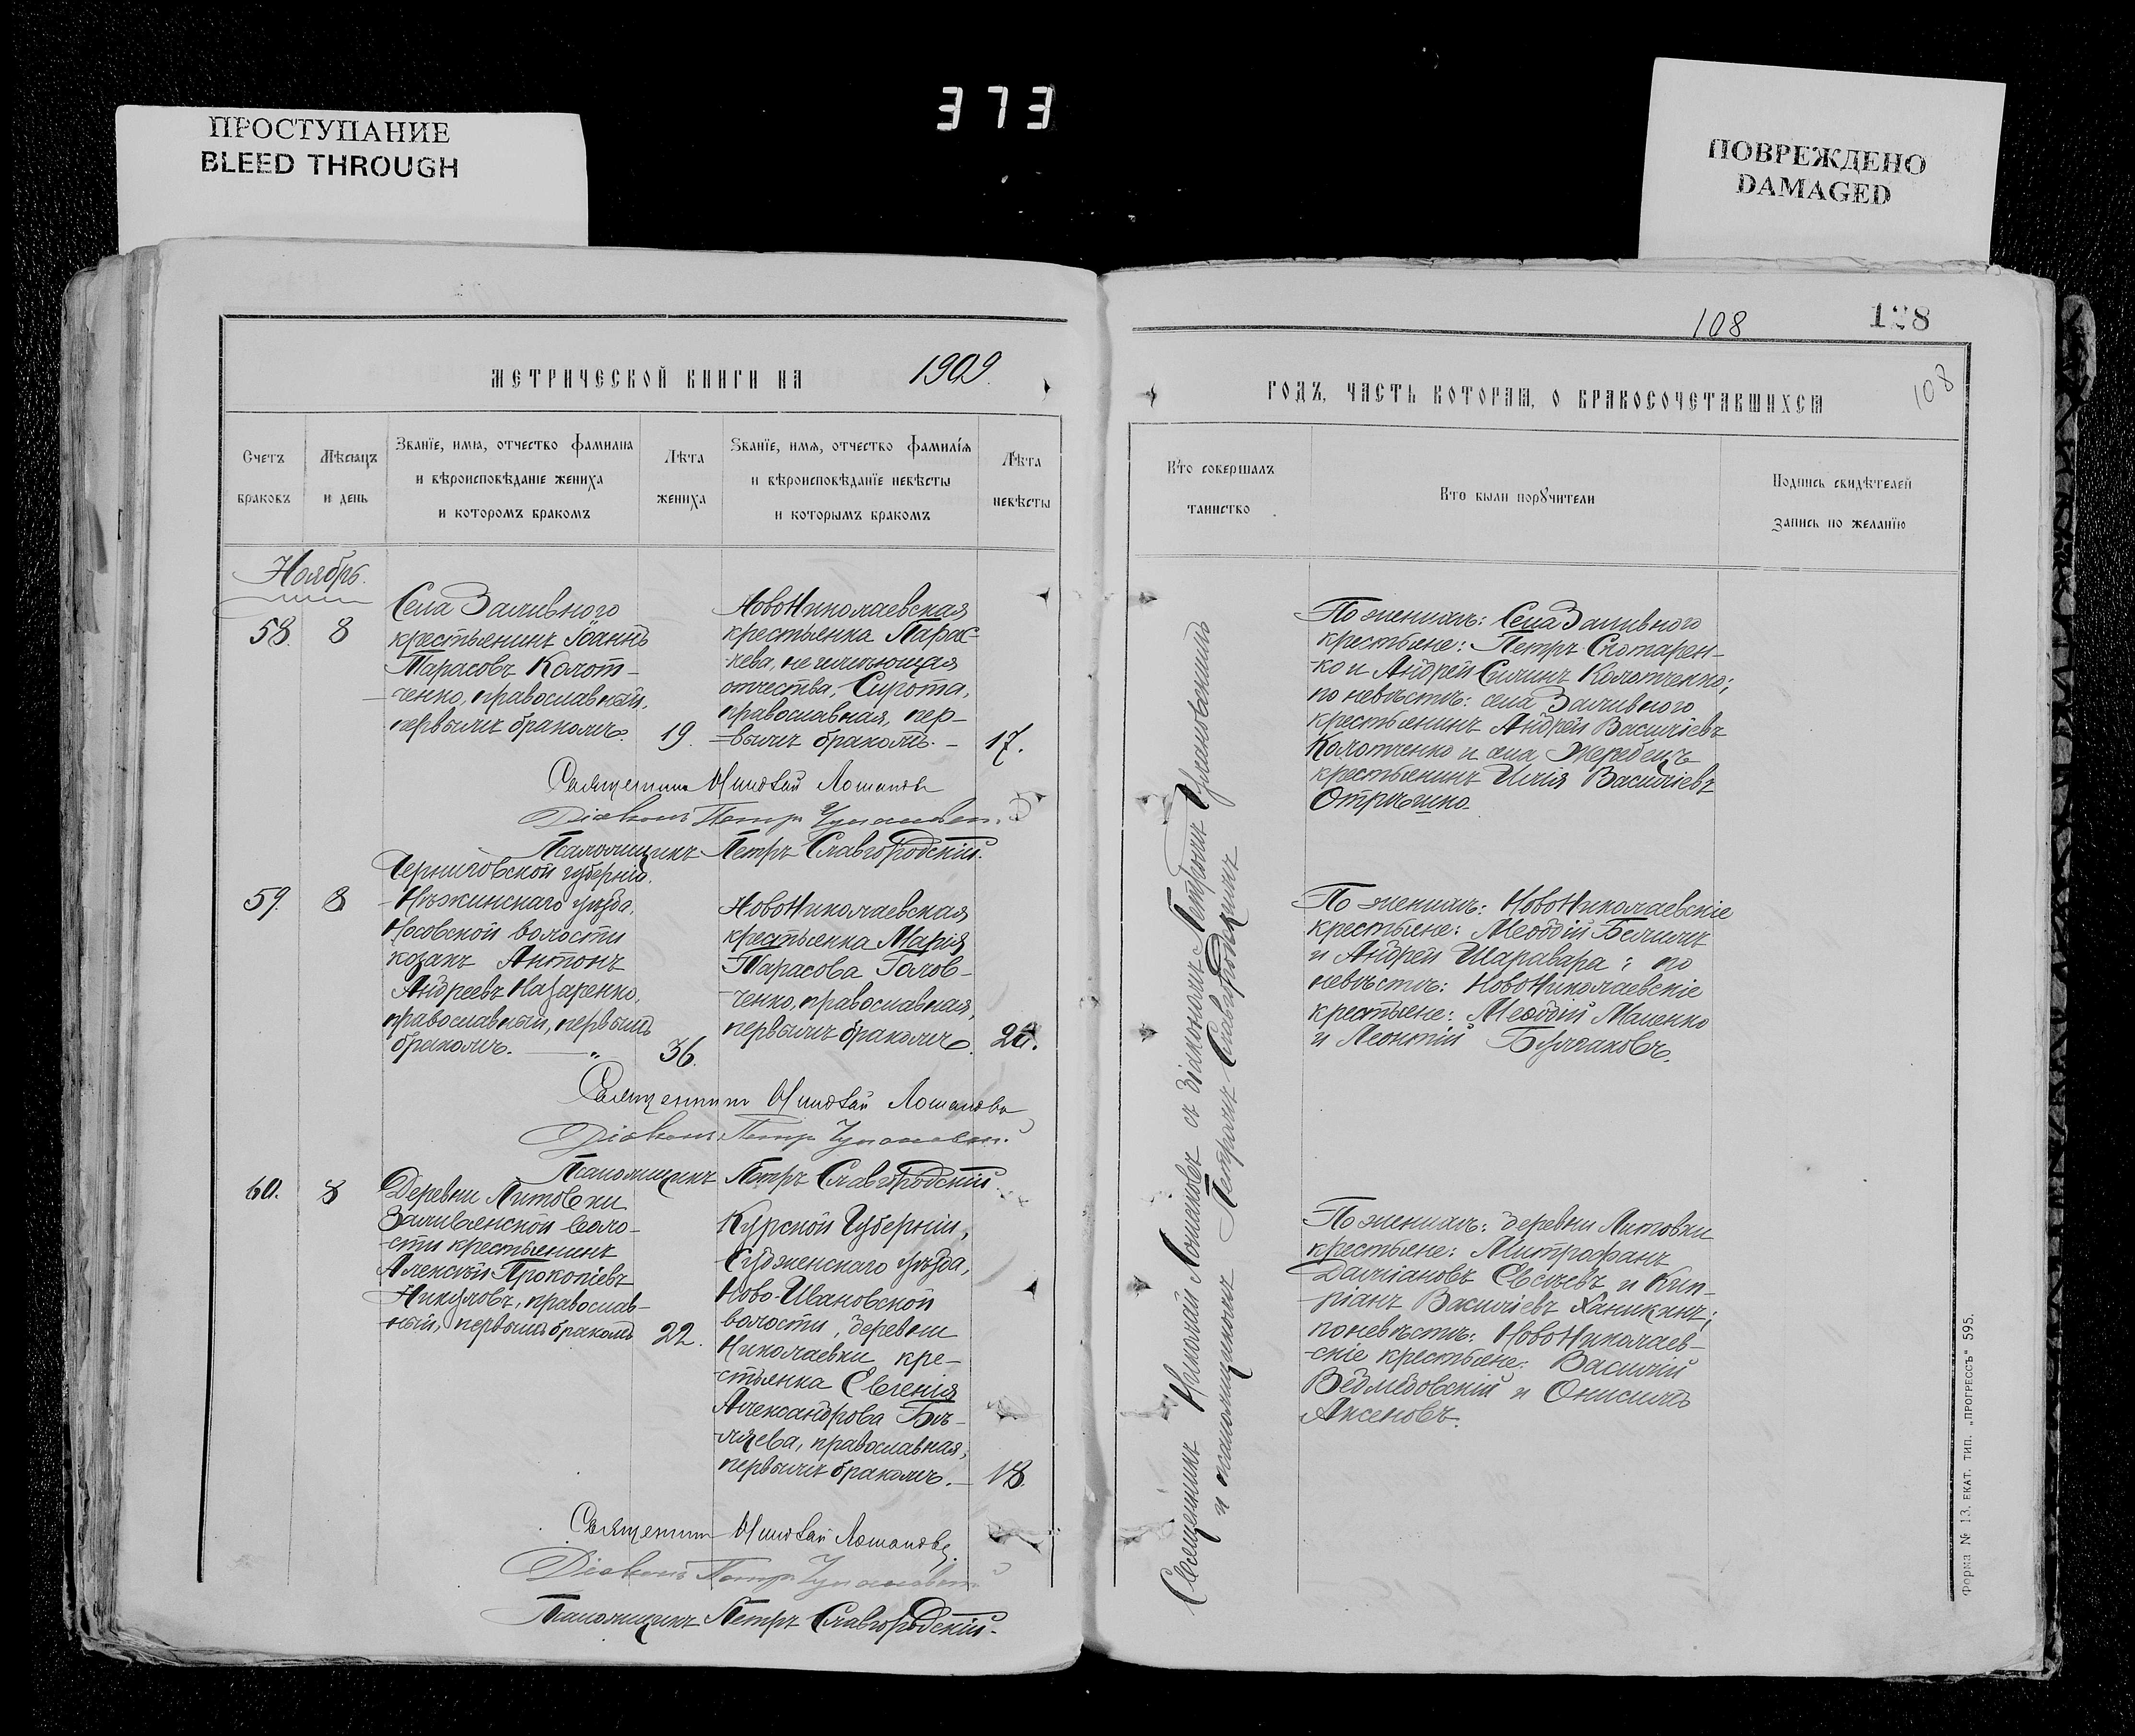 373
ПРОСТУПАНИЕ
BLEED THROUGH
ПОВРЕЖДЕНО
DAMAGED
МЕТРИЧЕСКОЙ КНИГИ НА 1909.
Счетъ браковъ
Мѣсяцъ и день
Званїе, имя, отчество фамилия
и вѣроисповѣданіе жениха
и которомъ бракомъ
Лѣта жениха
Званїе, имя, отчество фамилія
и вѣроисповѣданїе невѣсты
и которымъ бракомъ
Лѣта невѣсты
Ноябрь.
58. 8
Села Заливного
крестьянинъ Іоаннъ
Тарасовъ Колот-
ченко, православный,
первымъ бракомъ.
19.
НовоНиколаевская
крестьянка Парас-
кева, не имѣющая
отчества, Сирота,
православная, пер-
вымъ бракомъ.
17.
Священникъ Николай Лошаковъ
Діаконъ Петръ
Псаломщикъ Петръ Славгородскій.
59. 8
Черниговской губерніи,
Нѣжинскаго уѣзда,
Носовской волости
козакъ Антонъ
Андреевъ Назаренко,
православный, первымъ
бракомъ. — "
36.
НовоНиколаевская
крестьянка Марія
Тарасова Голов-
ченко, православная,
первымъ бракомъ.
Священникъ Николай Лошаковъ
Діаконъ Петръ
Псаломщикъ Петръ Славгородскій.
60. 8
Деревни Литовки
Заливянской воло-
сти крестьянинъ
Алексѣй Прокопіевъ
Никуловъ, православ-
ный, первымъ бракомъ
22.
Курской Губерніи,
Судженскаго уѣзда,
Ново-Ивановской
волости, деревни
Николаевки кре-
стьянка Евгенія
Александрова Бѣ-
ляева, православная,
первымъ бракомъ.
18.
Священникъ Николай Лошаковъ
Діаконъ Петръ
Псаломщикъ Петръ Славгородскій.
108
128
108
ГОДЪ, ЧАСТЬ КОТОРАЯ, О БРАКОСОЧЕТАВШИХСЯ
Кто совершалъ таинство
Кто были поручители
Подпись свидѣтелей
запись по желанїю
Священникъ Николай Лошаковъ съ діакономъ Петромъ
и псаломщикомъ Петромъ Славгородскимъ
По женихѣ: Села Заливного
крестьяне: Петръ Скотарен-
ко и Андрей Силинъ Колотченко;
по невѣстѣ: села Заливного
крестьянинъ Андрей Василіевъ
Колотченко и села Жеребецъ
крестьянинъ Илія Василіевъ
По женихѣ: НовоНиколаевскіе
крестьяне: Меѳодій
и Андрей Шаравара; по
невѣстѣ: НовоНиколаевскіе
крестьяне: Меѳодій Маценко
и Леонтій Булгаковъ.
По женихѣ: деревни Литовки
крестьяне: Митрофанъ
Даміановъ Евсѣевъ и Кип-
ріанъ Василіевъ
по невѣстѣ: НовоНиколаев-
скіе крестьяне: Василій
Ведмедовскій и Онисимъ
Аксеновъ.
Форма № 13. ЕКАТ. ТИП. „ПРОГРЕССЪ" 595.